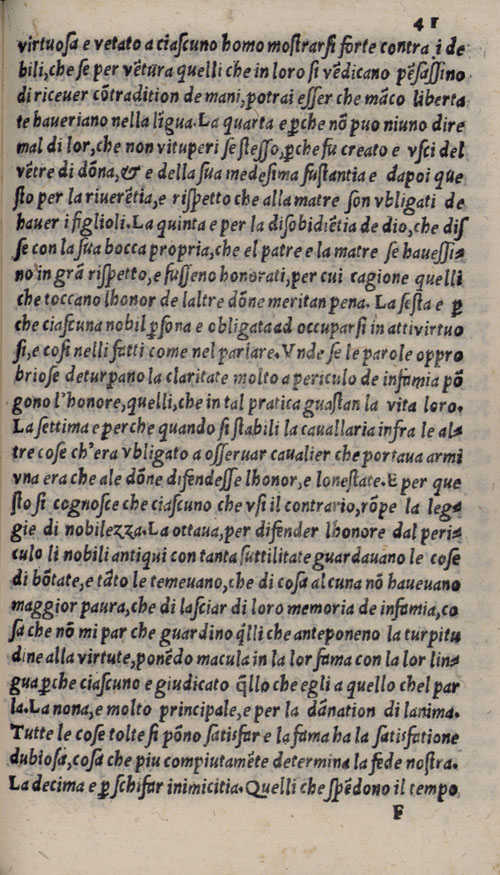 41
virtuosa e vetato a ciascuno homo mostrarsi forte contra i de
bili, che se per vẽtura quelli che in loro si vẽdicano pẽsassino
di ricever cõtradition de mani, potrai esser che mãco liberta
te haveriano nella lĩgua. La quarta e ꝑche nõ puo niuno dire
mal di lor, che non vituperi se stesso, ꝑche fu creato e vsci del
vẽtre di dõna, & e della sua medesima sustantia e dapoi que
sto per la riverẽtia, e rispetto che alla matre son vbligati de
haver i figlioli. La quinta e per la disobidiẽtia de dio, che dis
se con la sua bocca propria, che el patre e la matre se havessi-
no in grã rispetto, e fusseno honorati, per cui cagione quelli
che toccano lhonor de laltre dõne meritan pena. La sesta e ꝑ
che ciascuna nobil ꝑsona e obligata ad occuparsi in atti virtuo
si, e cosi nelli fatti come nel parlare. Vnde se le parole oppro
briose deturpano la claritate molto a periculo de infamia põ
gono l'honore, quelli, che in tal pratica guastan la vita loro.
La settima e perche quando si stabili la cavallaria infra le al-
tre cose ch'era vbligato a osservar cavalier che portava armi
vna era che ale dõne difendesse lhonor, e lonestate. E per que
sto si cognosce che ciascuno che vsi il contrario, rõpe la leg-
gie di nobilezza. La ottava, per difender lhonore dal peri-
culo li nobili antiqui con tanta suttilitate guardavano le cose
di bõtate, e tãto le temevano, che di cosa alcuna nõ havevano
maggior paura, che di lasciar di loro memoria de infamia, co
sa che nõ mi par che guardino q̃lli che anteponeno la turpitu
dine alla virtute, ponẽdo macula in la lor fama con la lor lin-
gua ꝑche ciascuno e giudicato q̃llo che egli a quello chel par
la. La nona, e molto principale, e per la dãnation di lanima.
Tutte le cose tolte si põno satisfar e la fama ha la satisfatione
dubiosa, cosa che piu compiutamẽte determina la fede nostra.
La decima e ꝑ schifar inimicitia. Quelli che spẽdono il tempo
F